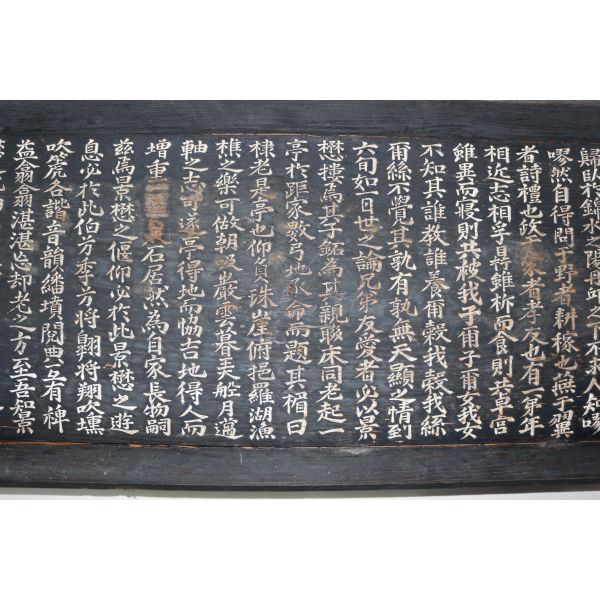 歸臥於錦水之陽丹邱之下不求人知
然自得問于野者耕稼也燕于翼
者詩禮也政于家者孝友也有一弟年
相近志相孚雖析而食則共卓宮
雖異而寢則共被我子甭子甭女我女
不知其誰教誰養甭穀我穀我絲
爾絲不覺其孰有孰無天顯之情到
六旬如一日世之論兄弟友愛者必以景
懋樓爲其子爲其親聯床同老起一
亭於距家數弓地承命而題其楣曰
棣老是亭也仰負珠崖俯挹羅湖漁
樵之樂可做朝吸巖雲暮天船月薖
軸之志可遂亭得地而協吉地得人而
增重石居然為自家長物嗣
茲爲景懋之偃仰必於此景懋之遊
息必於此伯芳季方將翺將翔吹壎
吹箎各諧音韻繙墳閱典互有裨
益翕翕湛湛忘却老之方至吾知景